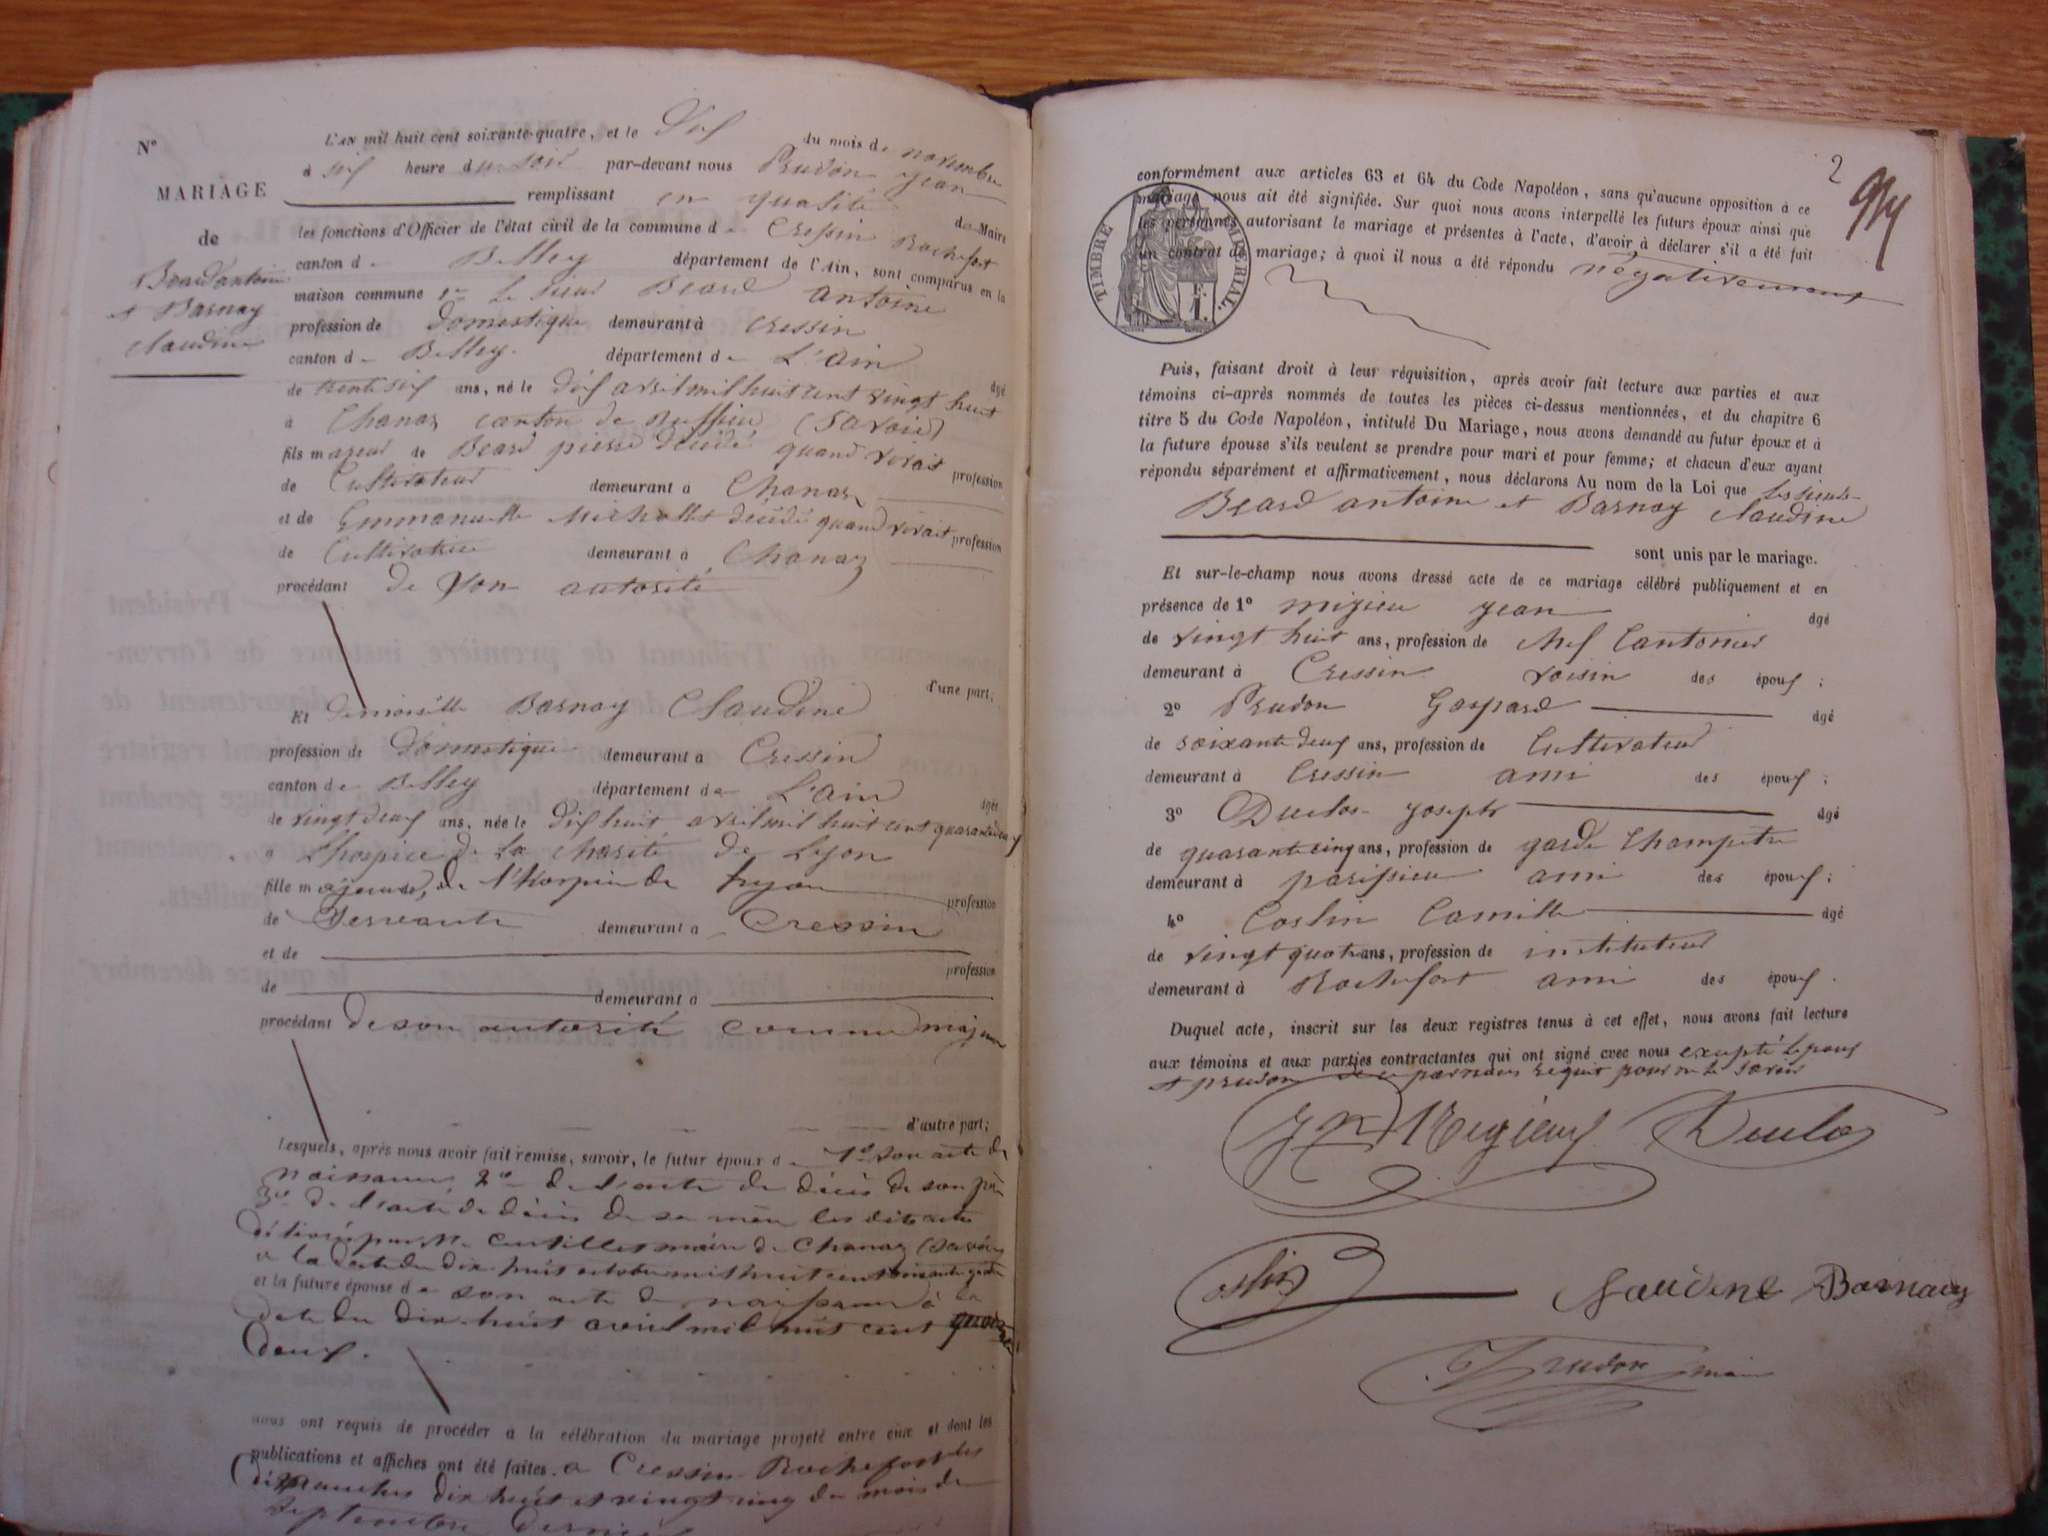 N°
MARIAGE
de
Beard antoine
et Barnay
claudine
L'AN mil huit cent soixante-quatre, et le Dix du mois de novembre
à six heure du soir par-devant nous Prudon jean
remplissant en qualité de Maire
les fonctions d'Officier de l'état civil de la commune de Cressin Rochefort
canton de Belley département de l'Ain, sont comparus en la
maison commune 1° le sieur Beard antoine
profession de domestique demeurant à Cressin
canton de Belley département de L'ain âgé
de trente six ans, né le dix avril mil huit cent vingt huit
à Chanaz canton de Ruffieu (Savoie)
fils majeur de Beard pierre décédé quand vivait profession
de Cultivateur demeurant à Chanaz
et de Emmanuelle Michollet décédé quand vivait profession
de Cultivatrice demeurant à Chanaz
procédant de son autorité
d'une part;
Et demoiselle Barnay Claudine
profession de domestique demeurant à Cressin
canton de Belley département de L'ain âgée
de vingt deux ans, née le dix huit avril mil huit cent quarante deux
à L'hospice de la charité de Lyon
fille majeure, de l'hospice de Lyon profession
de Servante demeurant à Cressin
et de profession
de demeurant à
procédant de son autorité comme majeure
d'autre part;
Lesquels, après nous avoir fait remise, savoir, le futur époux de 1° son acte de
naissance 2° de l'acte de décès de son père
3° de l'acte de décès de sa mère les dits actes
délivré par Mr maire de Chanaz (Savoie)
a la date du dix huit octobre mil huit cent soixante quatre
et la future épouse de son acte de naissance à la
date du dix-huit avril mil huit cent quarante
deux.
nous ont requis de procéder à la célébration du mariage projeté entre eux et dont les
publications et affiches ont été faites. a Cressin Rochefort les
dimanches dix huit et vingt cinq du mois de
septembre dernier
2
conformément aux articles 63 et 64 du Code Napoléon, sans qu'aucune opposition à ce
mariage nous ait été signifiée. Sur quoi nous avons interpellé les futurs époux ainsi que
les personnes autorisant le mariage et présentes à l'acte, d'avoir à déclarer s'il a été fait
un contrat de mariage; à quoi il nous a été répondu négativement
TIMBRE IMPÉRIAL.
1 F.
Puis, faisant droit à leur réquisition, après avoir fait lecture aux parties et aux
témoins ci-après nommés de toutes les pièces ci-dessus mentionnées, et du chapitre 6
titre 5 du Code Napoléon, intitulé Du Mariage, nous avons demandé au futur époux et à
la future épouse s'ils veulent se prendre pour mari et pour femme; et chacun d'eux ayant
répondu séparément et affirmativement, nous déclarons Au nom de la Loi que
Beard antoine et Barnay claudine
sont unis par le mariage.
Et sur-le-champ nous avons dressé acte de ce mariage célébré publiquement et en
présence de 1° migieu jean âgé
de vingt huit ans, profession de chef Cantonier
demeurant à Cressin voisin des époux ;
2° Prudon Gaspard âgé
de soixante deux ans, profession de Cultivateur
demeurant à Cressin ami des époux ;
3° Duclos joseph âgé
de quarante cinq ans, profession de garde Champetre
demeurant à parissieu ami des époux ;
4° Coslin Camille âgé
de vingt quatre ans, profession de instituteur
demeurant à Rochefort ami des époux .
Duquel acte, inscrit sur les deux registres tenus à cet effet, nous avons fait lecture
aux témoins et aux parties contractantes qui ont signé avec nous excepté lepoux
et prudon de ce requis pour ne le savoir
Duclos
Coslin
Claudine Barnay
Prudon maire